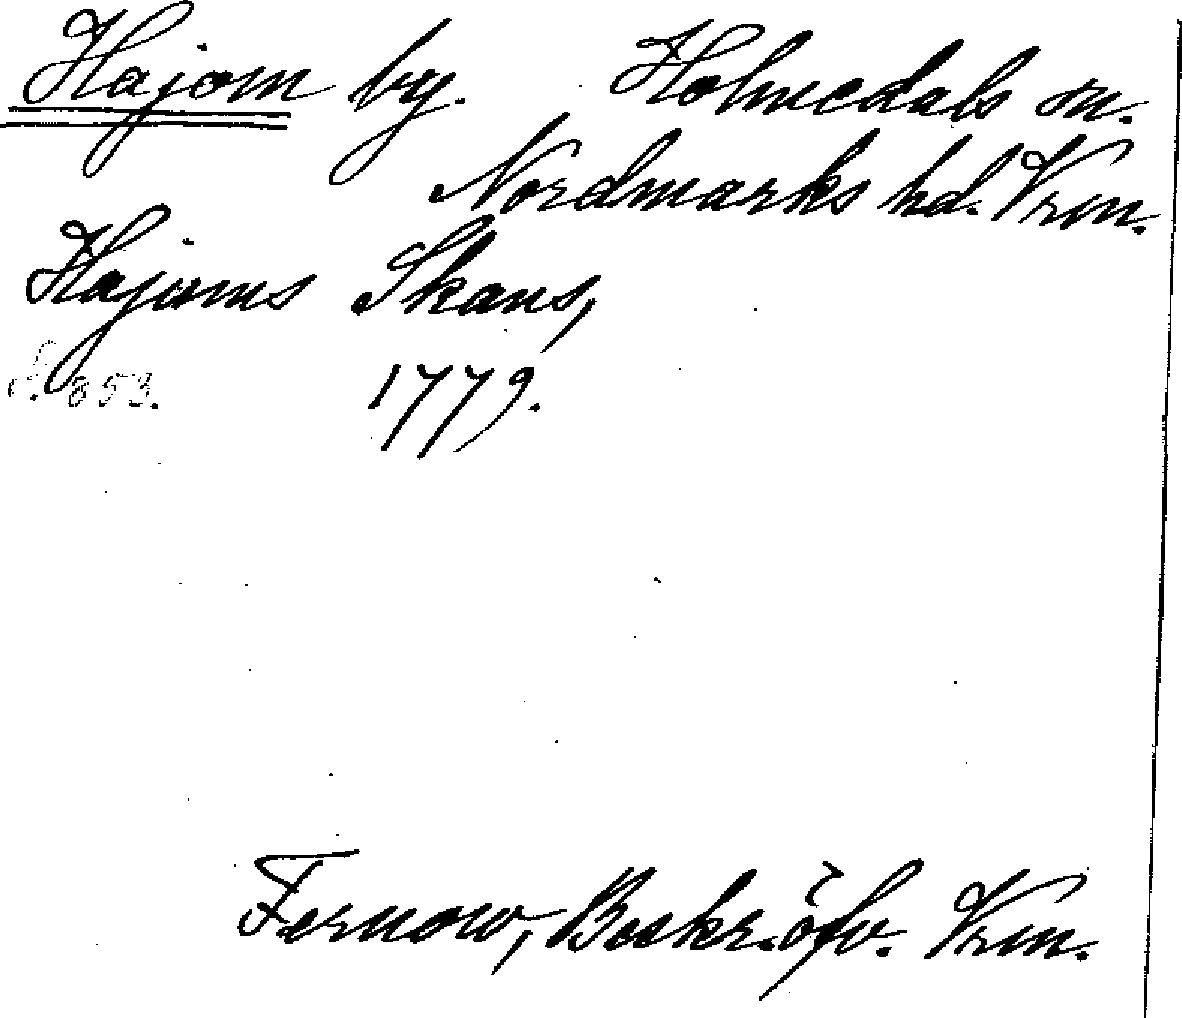 Hajom by. Holmedals sn.
Nordmarks hd. Vrm.
Hajoms Skans,
S. 853. 1779.
Fernow, Beskr. öfv. Vrm.